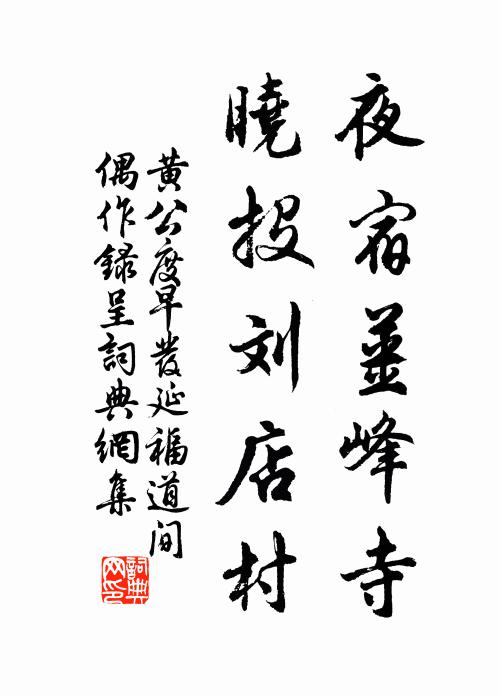 夜宿薑峰寺
曉投刘店村
黄公度早發延福道间
偶作録呈詞典網集
詞典网印